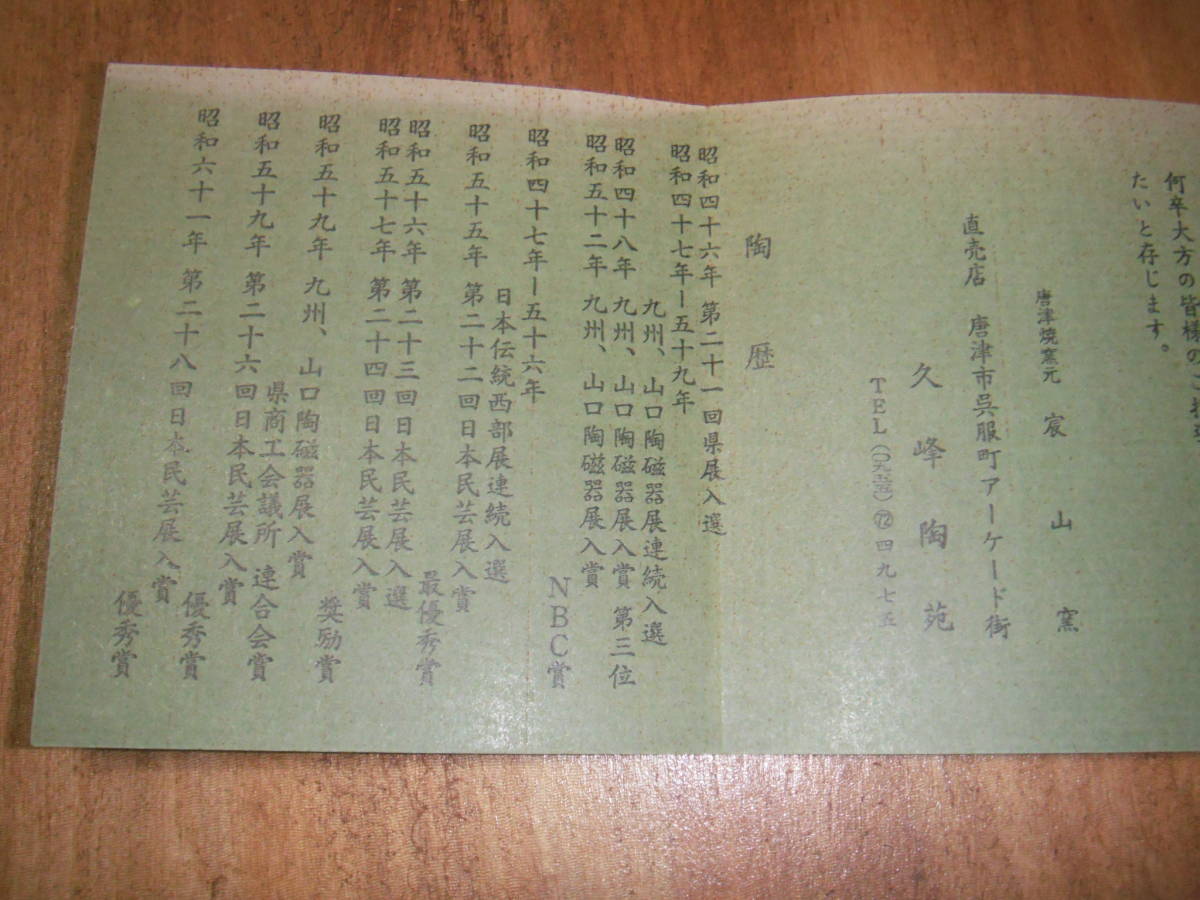 何卒大方の皆様の
たいと存じます。
唐津焼窯元 宸山窯
直売店 唐津市呉服町アーケード街
久峰陶苑
TEL(〇九五五)(72)四九七五
陶歴
昭和四十六年 第二十一回県展入選
昭和四十七年ー五十九年
九州、山口陶磁器展連続入選
昭和四十八年 九州、山口陶磁器展入賞 第三位
昭和五十二年 九州、山口陶磁器展入賞
NBC賞
昭和四十七年ー五十六年
日本伝統西部展連続入選
昭和五十五年 第二十二回日本民芸展入賞
最優秀賞
昭和五十六年 第二十三回日本民芸展入選
昭和五十七年 第二十四回日本民芸展入賞
奨励賞
昭和五十九年 九州、山口陶磁器展入賞
県商工会議所 連合会賞
昭和五十九年 第二十六回日本民芸展入賞
優秀賞
昭和六十一年 第二十八回日本民芸展入賞
優秀賞